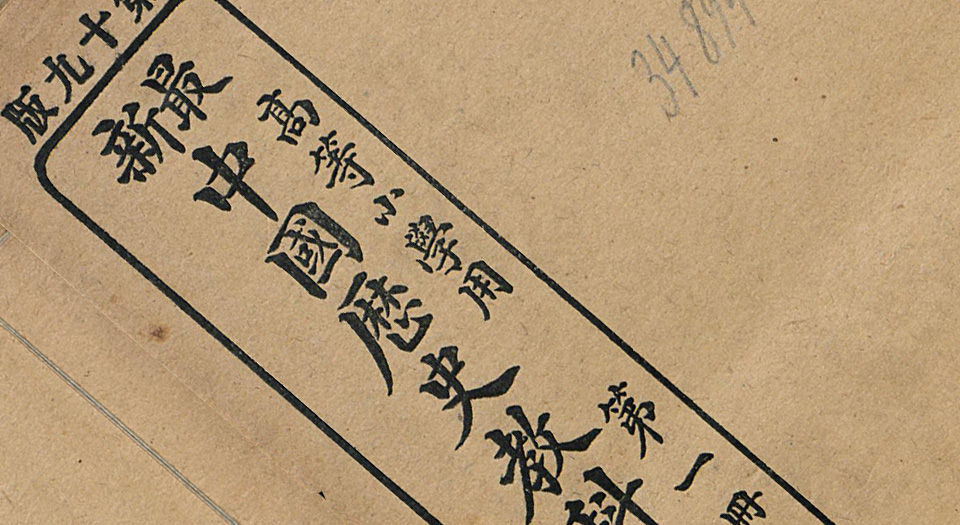 第十九版
高等小學用 第一冊
最新
中國歷史教科
34.899